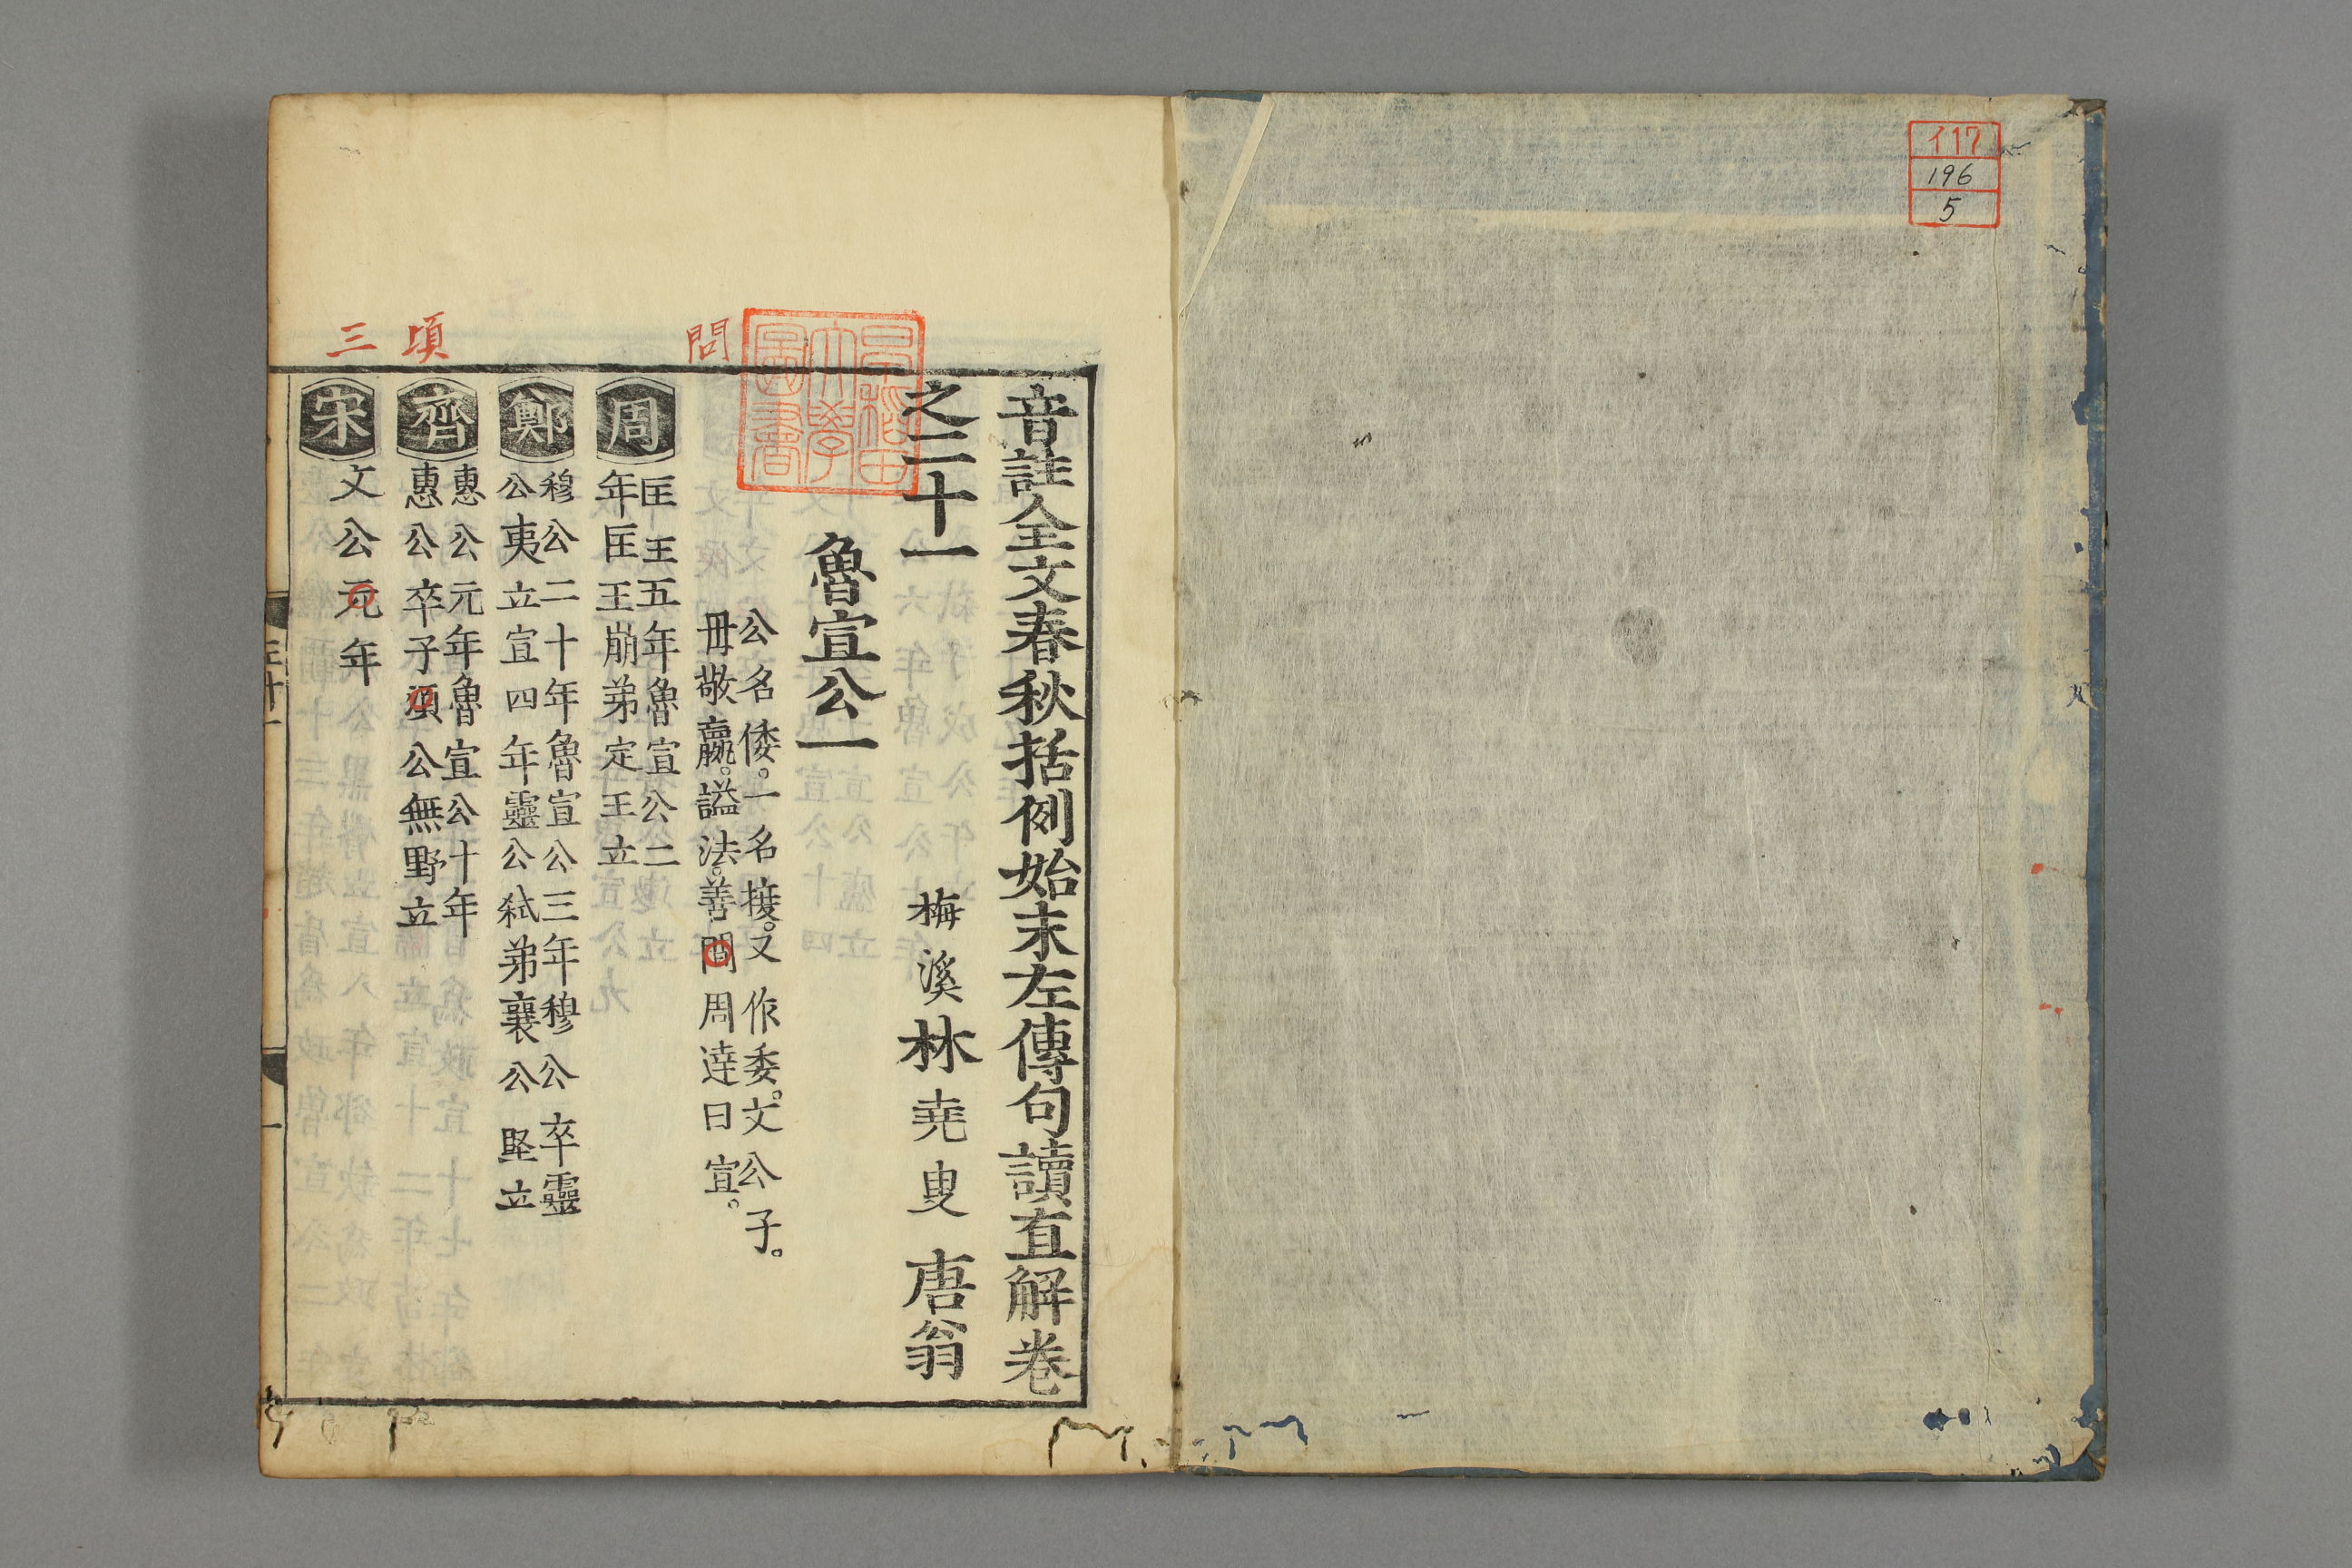 イ17
196
5
音註全文春秋括例始末左傳句讀直解卷
之二十一
梅溪林堯叟唐翁
早稻田
大學
圖書
魯宣公一
公名倭。一名接。又作委。文公子。
毋敬嬴。謚法。善間周達曰宣。
問
周
匡王五年魯宣公二
年匡王崩弟定王立
鄭
穆公二十年魯宣公三年穆公卒靈
公夷立宣四年靈公弑弟襄公堅立
頃
齊
惠公元年魯宣公十年
惠公卒子須公無野立
三
宋
文公元年